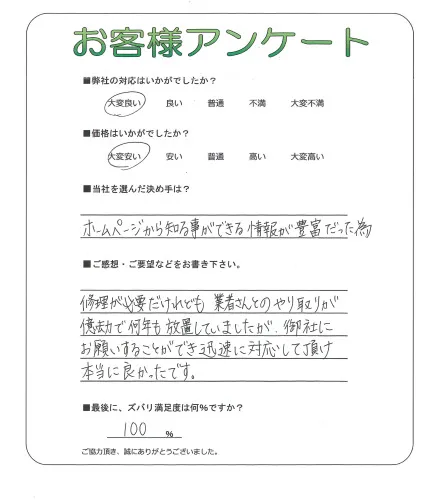 お客様アンケート
■弊社の対応はいかがでしたか？
大変良い 良い 普通 不満 大変不満
■価格はいかがでしたか？
大変安い 安い 普通 高い 大変高い
■当社を選んだ決め手は？
ホームページから知る事ができる情報が豊富だった為
■ご感想・ご要望などをお書き下さい。
修理が必要だけれども 業者さんとのやり取りが
億劫で何年も放置していましたが、御社に
お願いすることができ迅速に対応して頂け
本当に良かったです。
■最後に、ズバリ満足度は何％ですか？
100 ％
ご協力頂き、誠にありがとうございました。